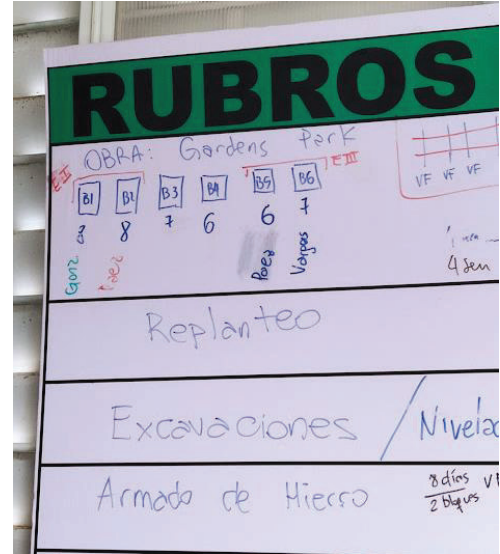 RUBROS
OBRA: Gardens Park
EII
EIII
B1 B2 B3 B4 B5 B6
8 8 7 6 6 7
Gonz Paez Paez Vargas
VF VF VF
4 sem
Replanteo
Excavaciones / Nivelac
Armado de Hierro
8 días
2 bloques